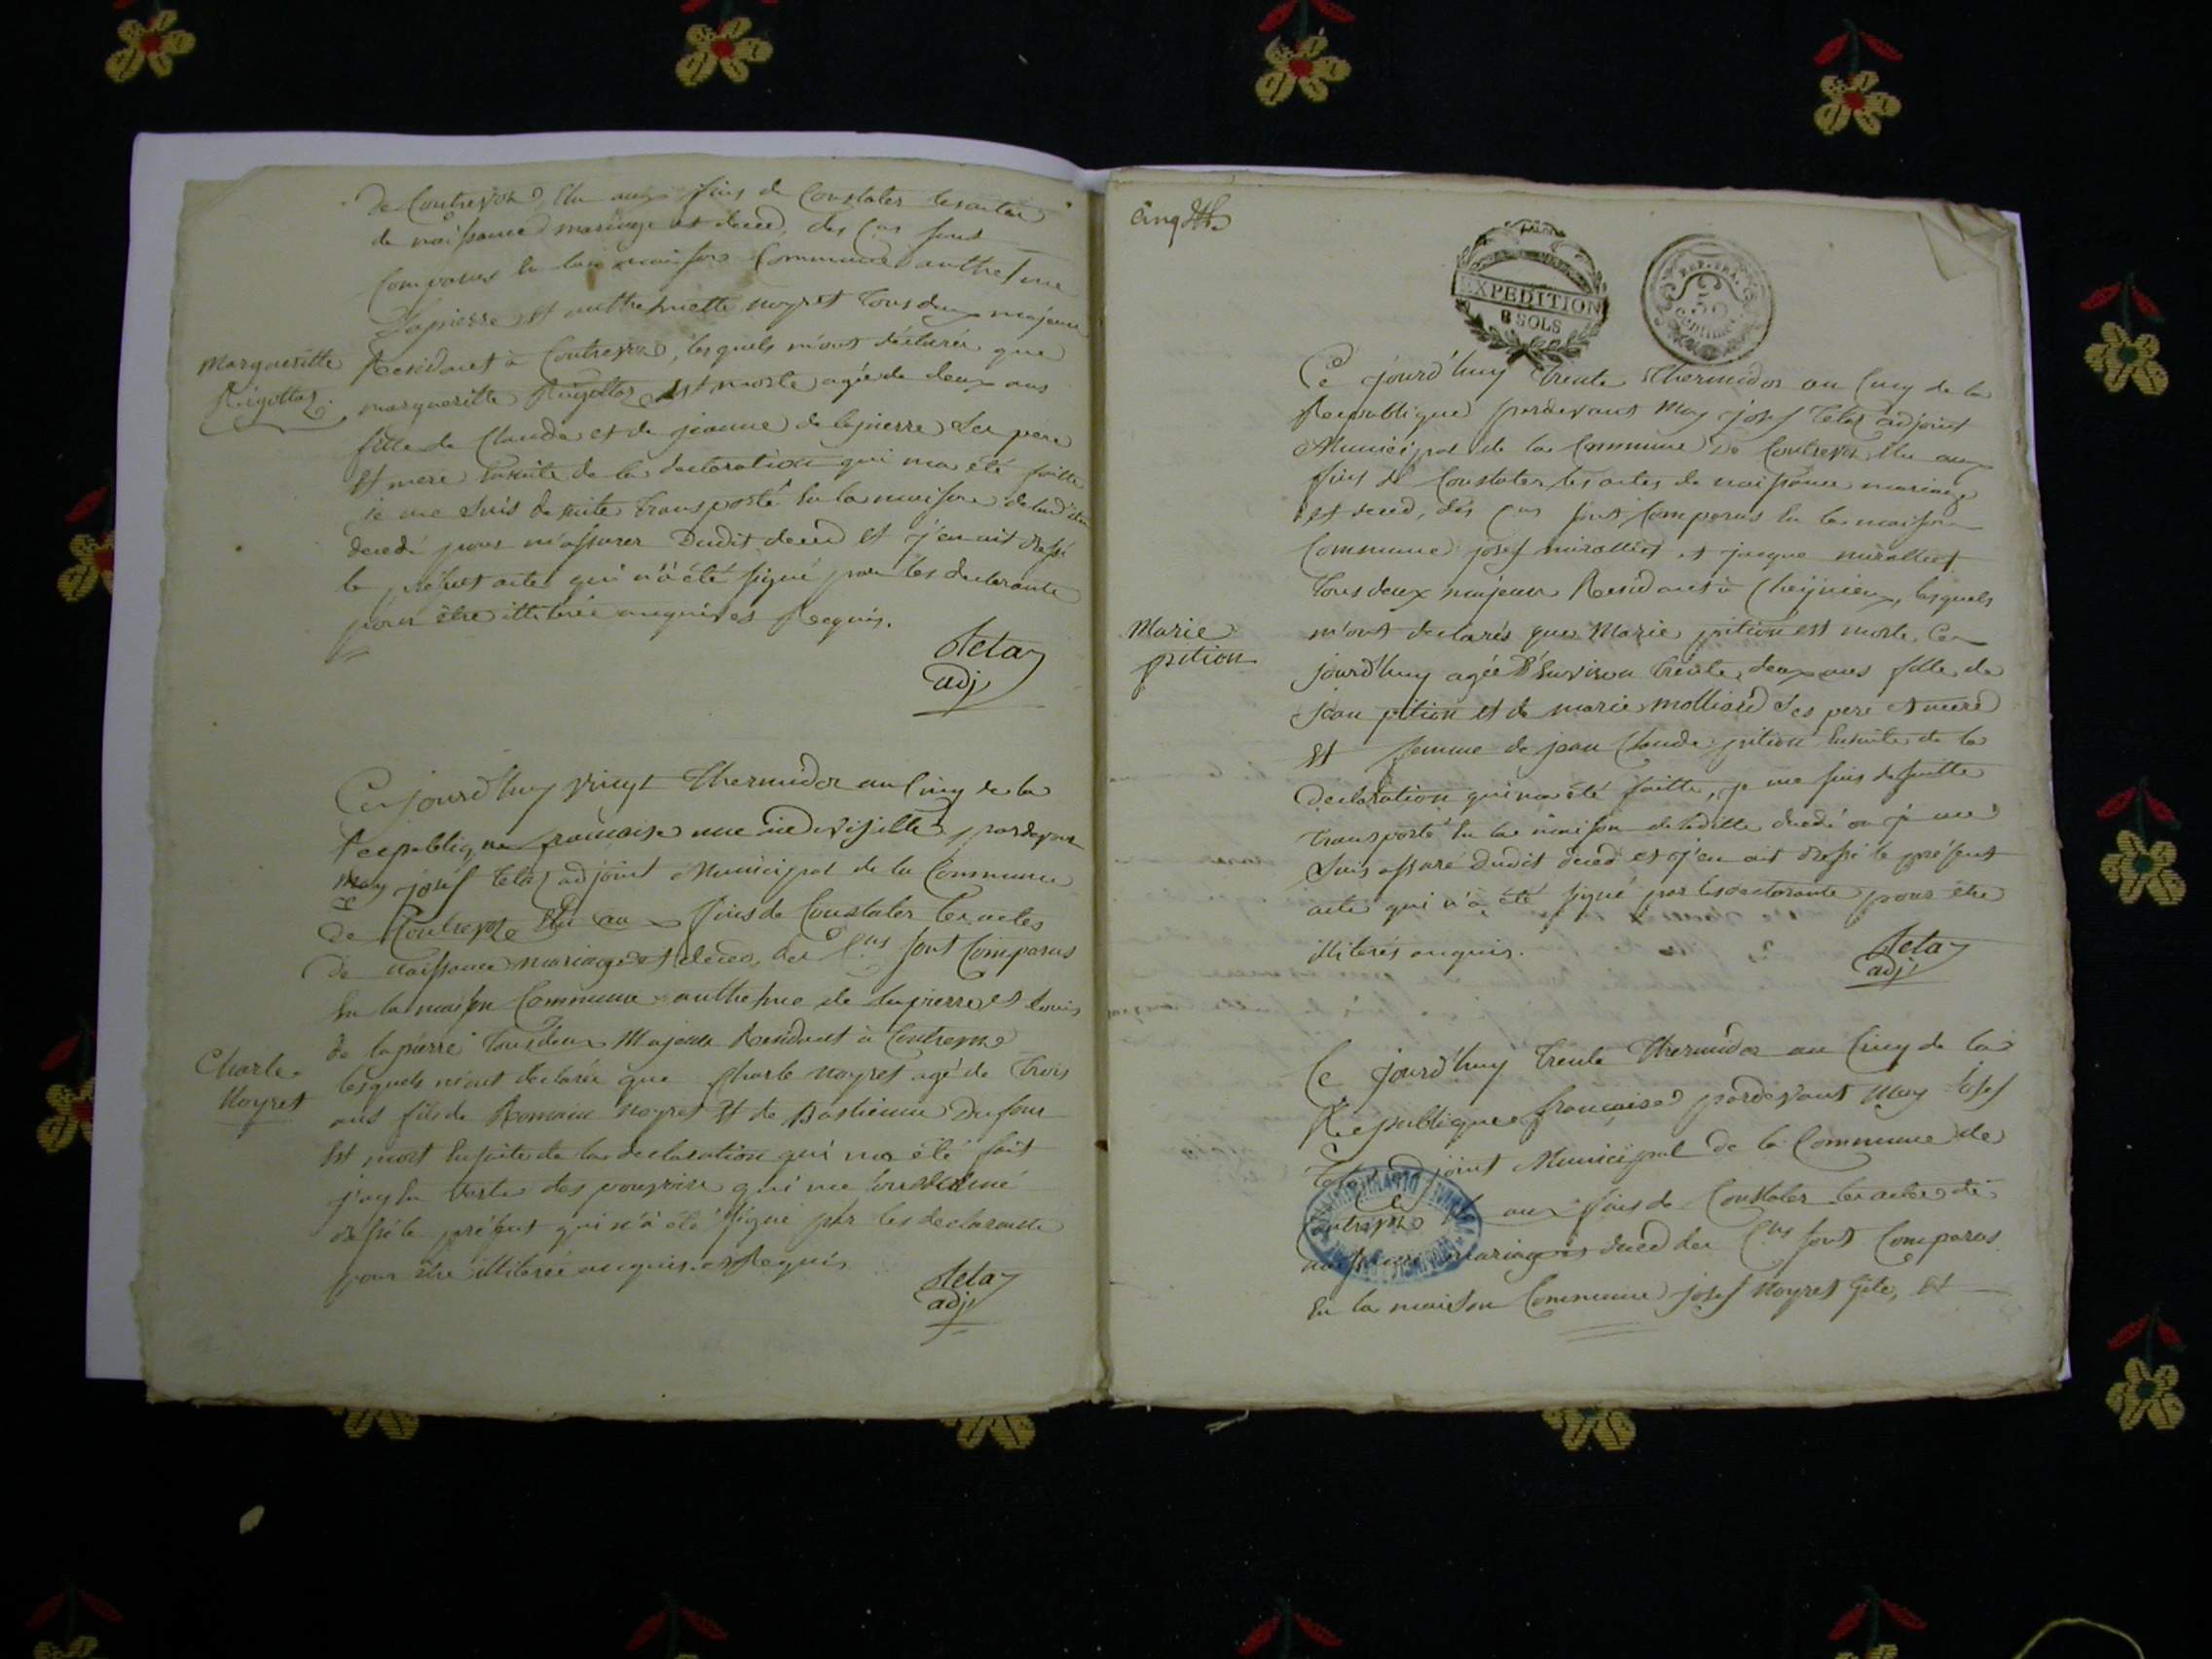 de Contrevoz Elu aux fins de Constater les actes
de naissance mariage et deced, des Cas sont
Comparus En la maison Commune anthelme
Lapierre et anthelmette noyret tous deux majeur
Residant à Contrevoz, lesquels m'ont déclarés que
Margueritte
Rigottaz
margueritte Rigottaz est morte agée de deux ans
fille de Claude et de jeanne de lapierre Ses pere
et mere Ensuite de la declaration qui ma été faitte
je me suis de suite transporté En la maison dudit
decedé pour m'assurer Dudit deced et j'en ait dressé
le présent acte qui n'à été signé par les declarants
pour être illiteré enquis et Requis.
tetaz
adj
Ce jourd'huy vingt thermidor an Cinq de la
Republique francaise une indivisible pardevant
Moy josef tetaz adjoint Municipal de la Commune
de Contrevoz Elu aux fins de Constater les actes
de naissance mariage et deced, des Cas sont Comparus
En la maison Commune anthelme de lapierre et Louis
de lapierre tous deux Majeur Residant à Contrevoz
Charle
Noyret
lesquels m'ont declarés que Charle noyret agé de trois
ans fils de Romain noyret et de Bastienne Dufour
Est mort Ensuite de la declaration qui ma été fait
j'ay En vertu des pouvoirs qui me
dressé le présent qui n'à été signé par les declarants
pour être illiterée enquis et Requis
tetaz
adj
Cinq
EXPEDITION
8 SOLS
REP. FRA.
Centimes
Ce jourd'huy trente thermidor an Cinq de la
Republique pardevant Moy josef tetaz adjoint
Municipal de la Commune de Contrevoz Elu aux
fins de Constater les actes de naissance mariage
et deced, des Cas sont Comparus En la maison
Commune josef miralliet et jacque miralliet
tous deux majeur Residant à Cheignieux, lesquels
Marie
pition
m'ont declarés que Marie pition est morte Ce
jourd'huy agée d'Environ trente deux ans fille de
jean pition et de marie molliard Ses pere et mere
et femme de jean Claude pition Ensuite de la
declaration qui ma été faitte, je me suis de suitte
transporté En la maison de laditte decedé ou je me
Suis assuré Dudit deced et j'en ait dressé le présent
acte qui n'à été signé par les declarants pour être
illiterés enquis.
tetaz
adj
Ce jourd'huy trente thermidor an Cinq de la
Republique francaise pardevant Moy Josef
tetaz adjoint Municipal de la Commune de
Contrevoz Elu aux fins de Constater les actes de
naissance mariage et deced des Cas sont Comparus
En la maison Commune josef noyret gite, et